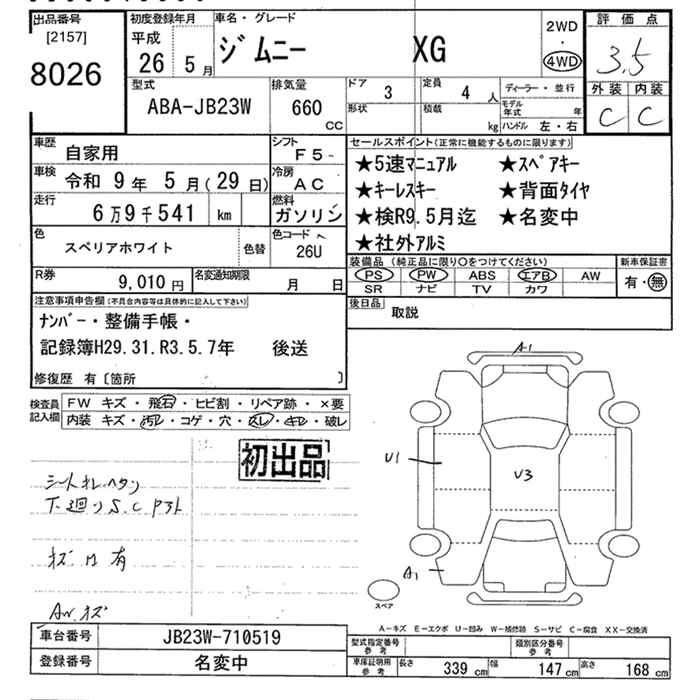 出品番号
[2157]
8026
初度登録年月
平成
26 5月
車名・グレード
ジムニー XG
2WD
・
4WD
評価点
3.5
外装 内装
C C
型式
ABA-JB23W
排気量
660
CC
ドア 3
定員 4 人
形状
積載 kg
ディーラー・並行
モデル年式 年
ハンドル 左・右
車歴 自家用
シフト F5
車検 令和 9年 5月(29日)
冷房 AC
走行 6万9千541 km
燃料 ガソリン
色 スペリアホワイト 色替
色コード 26U
R券 9,010円
名変通知期限 月 日
セールスポイント(正常に機能するものに限ります)
★5速マニュアル ★スペアキー
★キーレスキー ★背面タイヤ
★検R9.5月迄 ★名変中
★社外アルミ
装備品 (純正品に限り○をつけてください)
PS PW ABS エアB AW
SR ナビ TV カワ
新車保証書
有・無
後日品 取説
注意事項申告欄(不具合内容等は具体的に記入して下さい)
ナンバー・整備手帳・
記録簿H29.31.R3.5.7年 後送
修復歴 有〔箇所 〕
検査員記入欄
FW キズ・飛石・ヒビ割・リペア跡・×要
内装 キズ・汚レ・コゲ・穴・スレ・キレ・破レ
初出品
シートオレ.ヘタリ
下廻りS.C
有
キズ
A1
U1
U3
A1
スペア
A−キズ E−エクボ U−凹み W−補修跡 S−サビ C−腐食 XX−交換済
車台番号 JB23W-710519
登録番号 名変中
型式指定番号 参考
類別区分番号 参考
車庫証明用参考
長さ 339 cm
幅 147 cm
高さ 168 cm